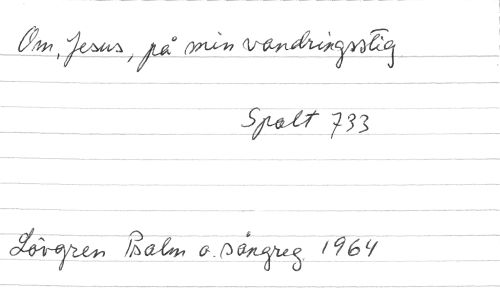 Om, Jesus, på min vandringsstig
Spalt 733
Lövgren Psalm o. sångreg. 1964